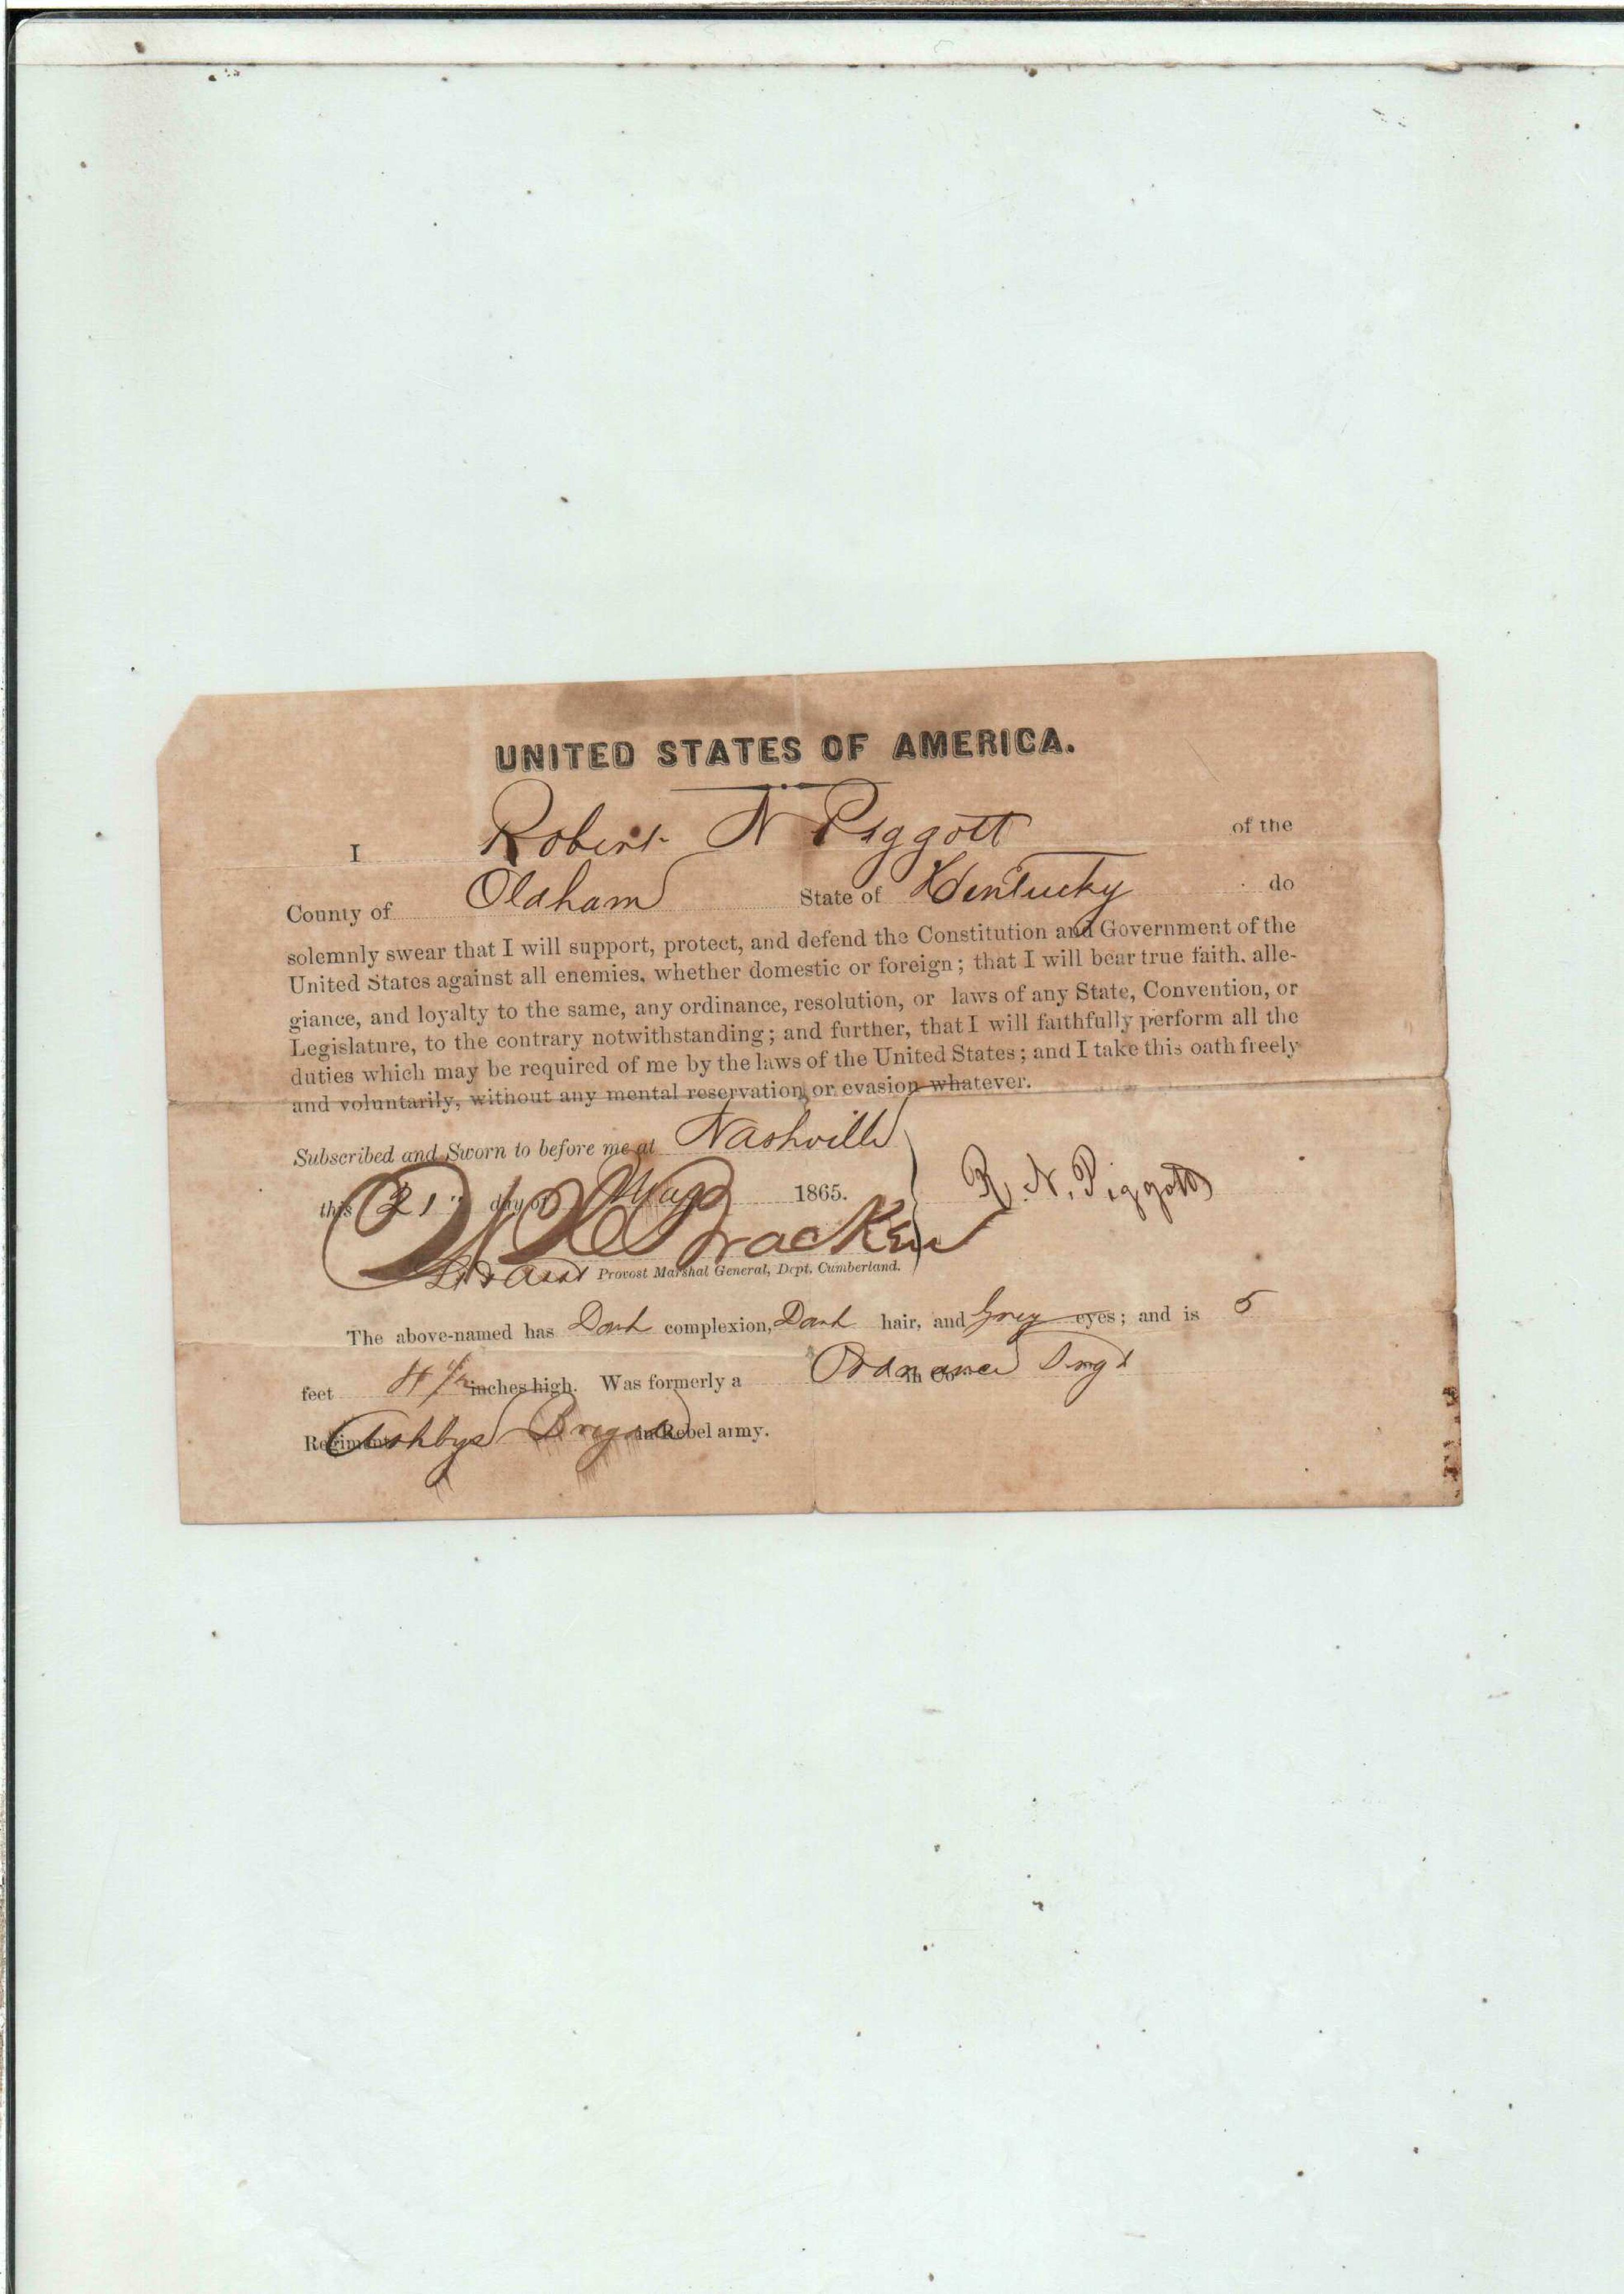 UNITED STATES OF AMERICA.
I Robert N Piggott of the
County of Oldham State of Kentucky do
solemnly swear that I will support, protect, and defend the Constitution and Government of the
United States against all enemies, whether domestic or foreign; that I will bear true faith, alle-
giance, and loyalty to the same, any ordinance, resolution, or laws of any State, Convention, or
Legislature, to the contrary notwithstanding; and further, that I will faithfully perform all the
duties which may be required of me by the laws of the United States; and I take this oath freely
and voluntarily, without any mental reservation or evasion whatever.
Subscribed and Sworn to before me at Nashville
this 21 day of May 1865. R. N. Piggott
Bracken
Provost Marshal General, Dept. Cumberland.
The above-named has Dark complexion, Dark hair, and Grey eyes; and is 5
feet inches high. Was formerly a Ordnance Sergt in Co.
Regiment Ashbys Brigade in Rebel army.